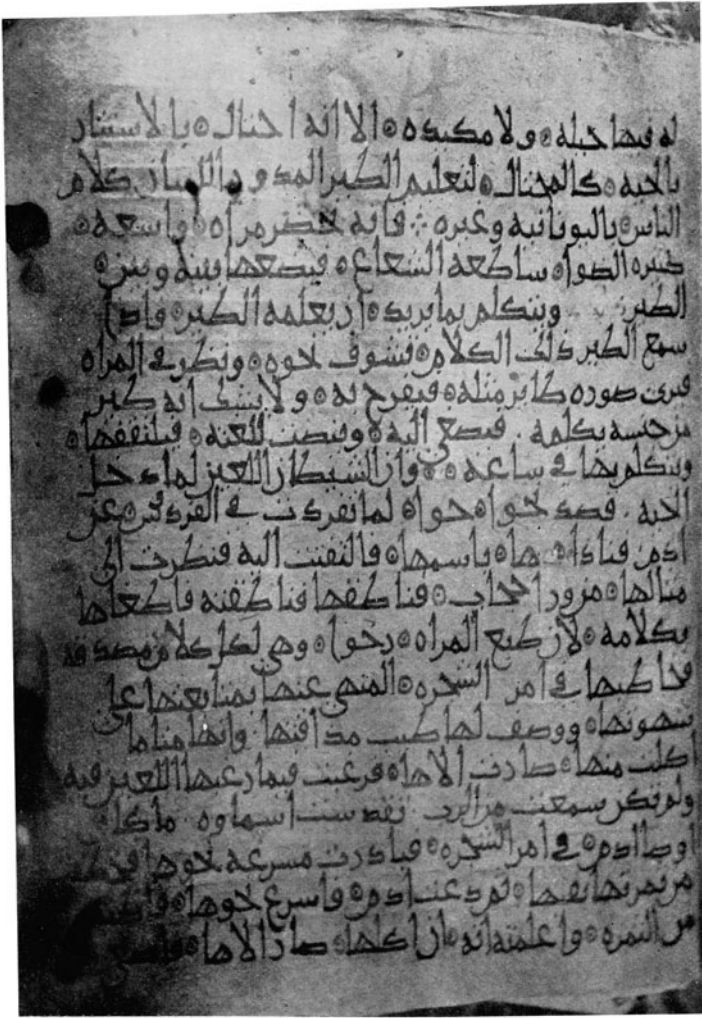 له فيها حيله ۞ ولا مكيده ۞ الا انه احتال ۞ بالاستتار
بالحيه ۞ كالمحتال ۞ لتعليم الطير باللسان كلام
الناس ۞ باليونانيه وغيره ⁘ فانه يحضر مراه ۞ واسعه ۞
كبيره الضوا ۞ ساطعه الشعاع ۞ فيضعها بينه وبين ۞
الطير ويتكلم بما يريد ۞ ان يعلمه الطير ۞ فاذا
سمع الطير ذلك الكلام ۞ تشوف نحوه ۞ ونظر في المراه
فيرى صوره طاير مثله ۞ فيفرح به ۞ ولا يشك انه طير
من جنسه يكلمه . فيصغي اليه ۞ وينصت للغته ۞ فيلتقفها ۞
ويتكلم بها في ساعته ۞ ۞ وان الشيطان اللعين لما دخل
الحيه . قصد نحو حواه لما تفردت في الفردوس ۞ عن
ادم فناداها ۞ باسمها ۞ فالتفتت اليه فنظرت الى
مثالها ۞ من ورا حجاب ۞ فناطقها فناطقته فاطغاها
بكلامه ۞ لان طبع المراه ۞ رخوا ۞ وهي لكل كلام مصدقه
فخاطبها في امر الشجره ۞ المنهي عنها بمتابعتها على
شهوتها ۞ ووصف لها طيب مذاقتها وانها متا ما
اكلت منها ۞ صارت الاهاه ۞ فرغبت فيما رغبها اللعين فيه
ولم تكن سمعت من الرب تقدست اسماوه ما كان
اوصا ادم ۞ في امر الشجره ۞ فبادرت مسرعه نحوها
من ثمرتها بفيها ۞ ثم دعت ادم ۞ فاسرع نحوها ۞
من الثمره ۞ واعلمته انه ۞ ان اكلها ۞ صار الاها ۞